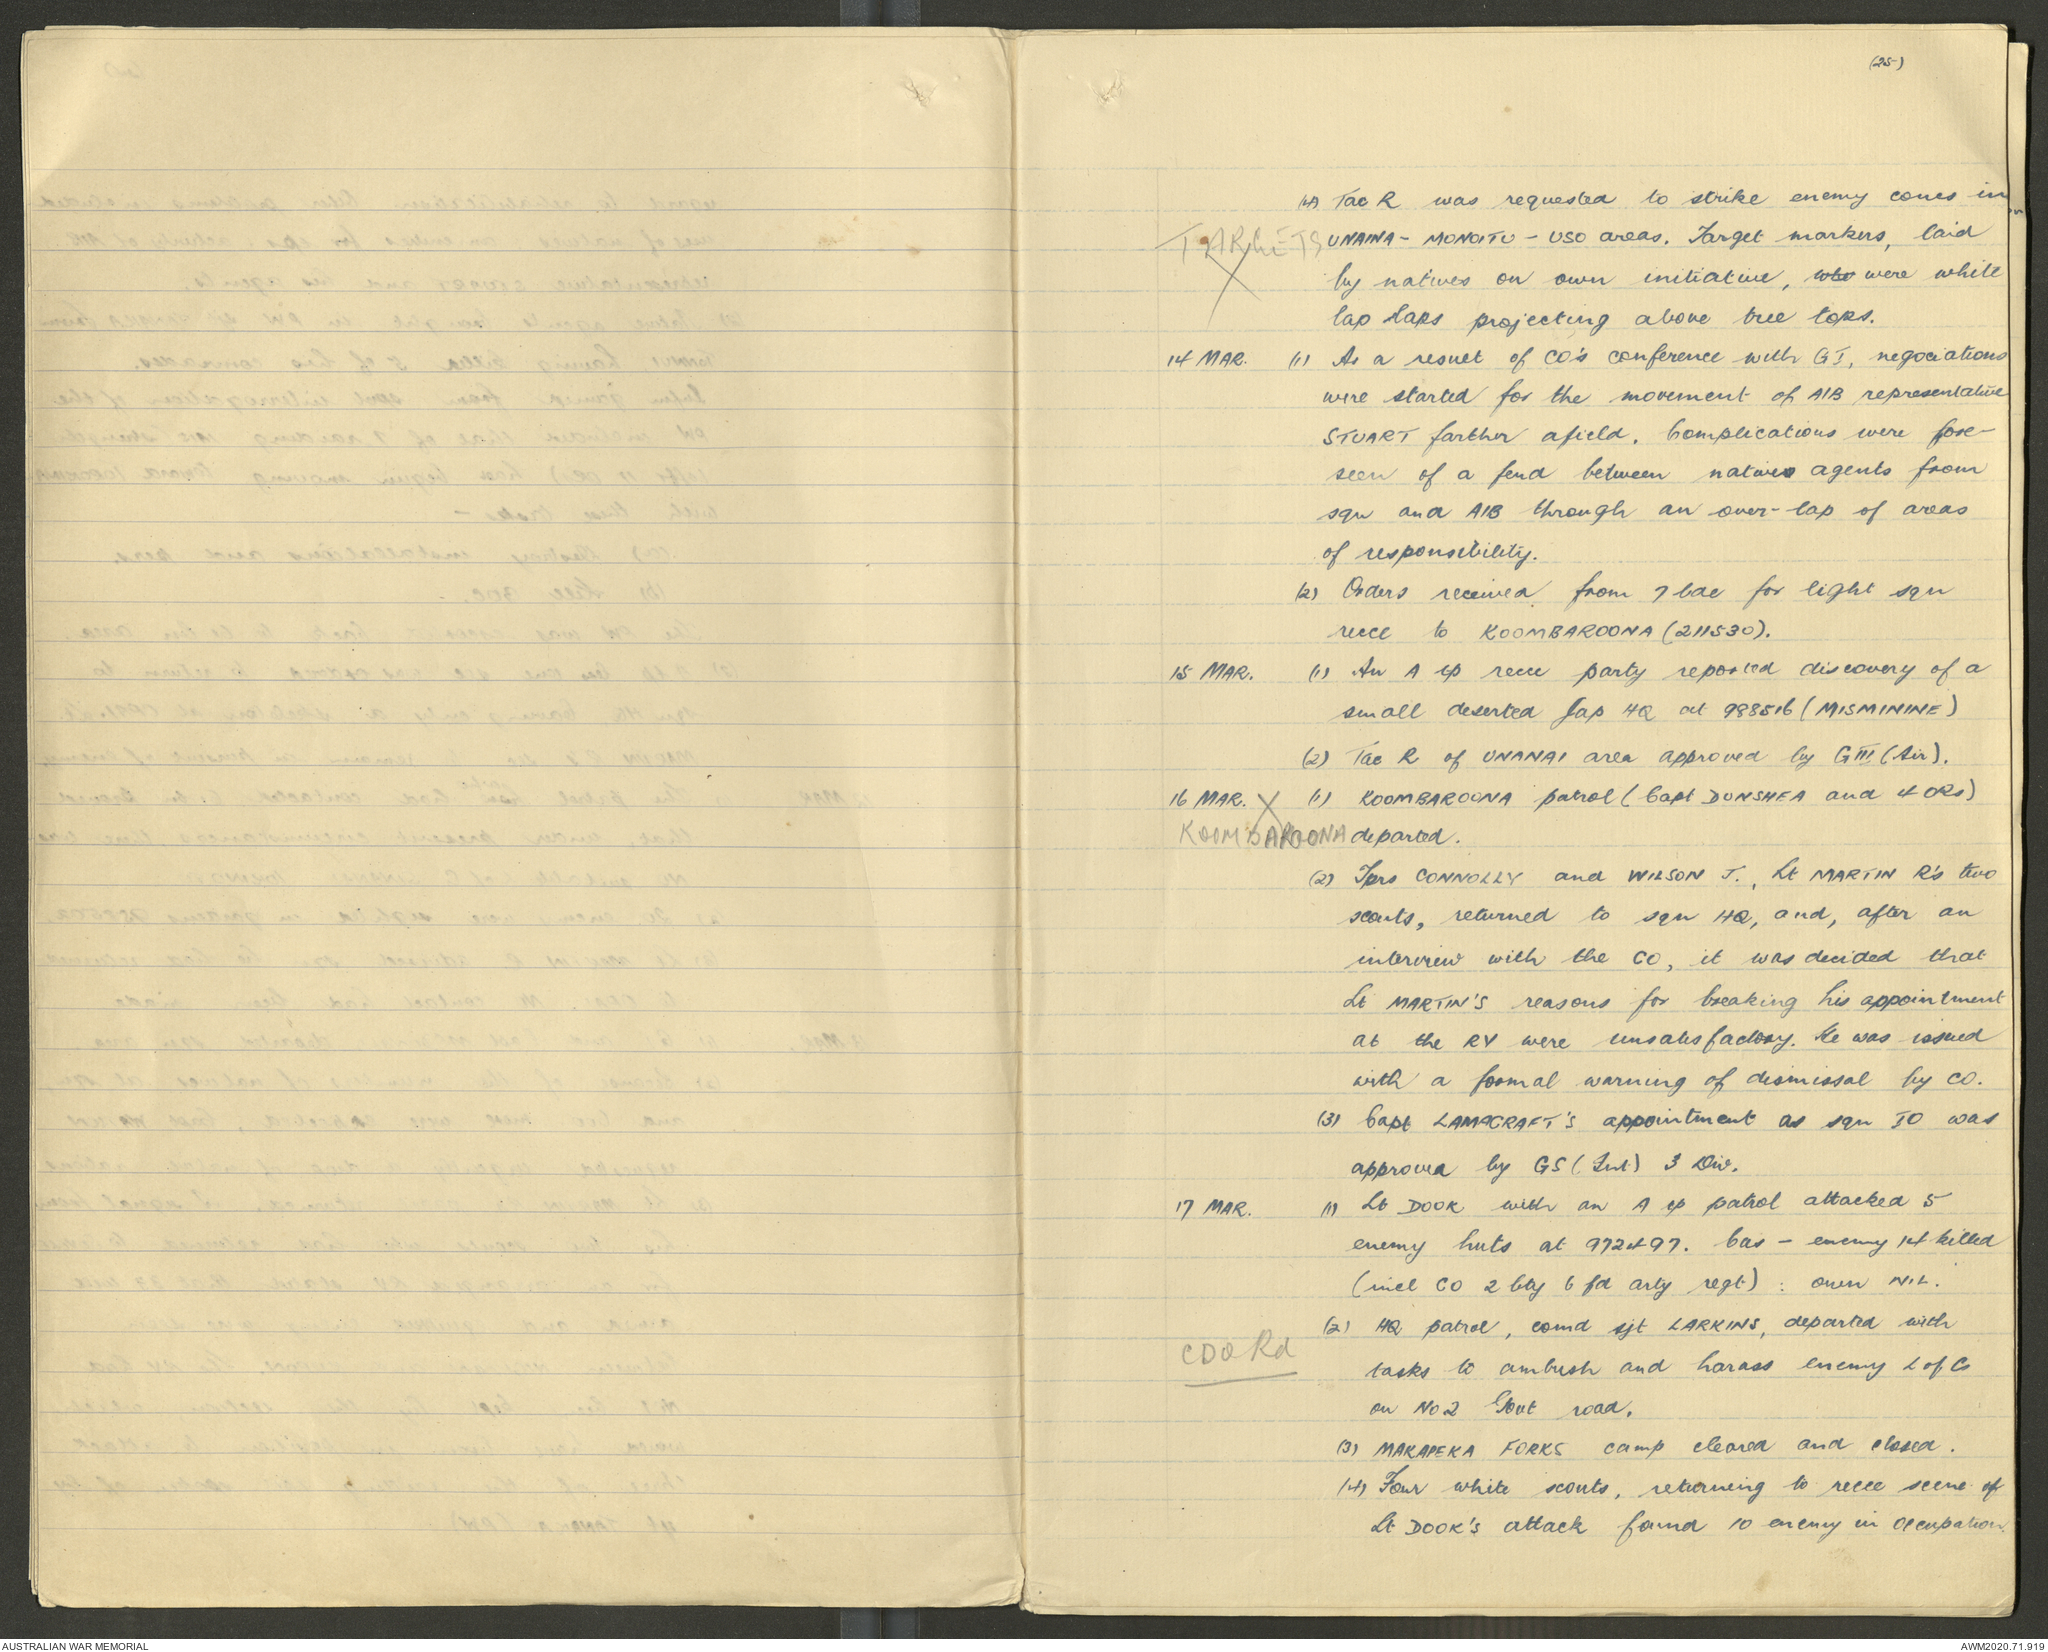 (25)
(4) Tac R was requested to strike enemy concs in
TARGETS
X
UNAINA - MONOITU - USO areas. Target markers, laid
by natives on own initiative, who were white
lap laps projecting above tree tops.
14 MAR. (1) As a result of CO's conference with GI, negociations
were started for the movement of AIB representative
STUART farther afield. Complications were fore-
seen of a feud between natives agents from
sqn and AIB through an over-lap of areas
of responsibility.
(2) Orders received from 7 bde for light sqn
recce to KOOMBAROONA (211530).
15 MAR. (1) An A tp recce party reported discovery of a
small deserted Jap HQ at 988516 (MISMININE)
(2) Tac R of UNANAI area approved by GIII (Air).
16 MAR. X (1) KOOMBAROONA patrol (Capt DUNSHEA and 4 ORs)
KOOMBAROONA departed.
(2) Tprs CONNOLLY and WILSON J., Lt MARTIN R's two
scouts, returned to sqn HQ, and, after an
interview with the CO, it was decided that
Lt MARTIN'S reasons for breaking his appointment
at the RV were unsatisfactory. He was issued
with a formal warning of dismissal by CO.
(3) Capt LAMACRAFT'S appointment as sqn IO was
approved by GS (Int) 3 Div.
17 MAR. (1) Lt DOOK with an A tp patrol attacked 5
enemy huts at 972497. Cas - enemy 14 killed
(incl CO 2 bty 6 fd arty regt) : own NIL.
(2) HQ patrol, comd sjt LARKINS, departed with
CDO Rd
tasks to ambush and harass enemy L of C
on No 2 Govt road.
(3) MAKAPEKA FORKS camp cleared and closed.
(4) Four white scouts, returning to recce scene of
Lt DOOK'S attack found 10 enemy in occupation.
AUSTRALIAN WAR MEMORIAL
AWM2020.71.919